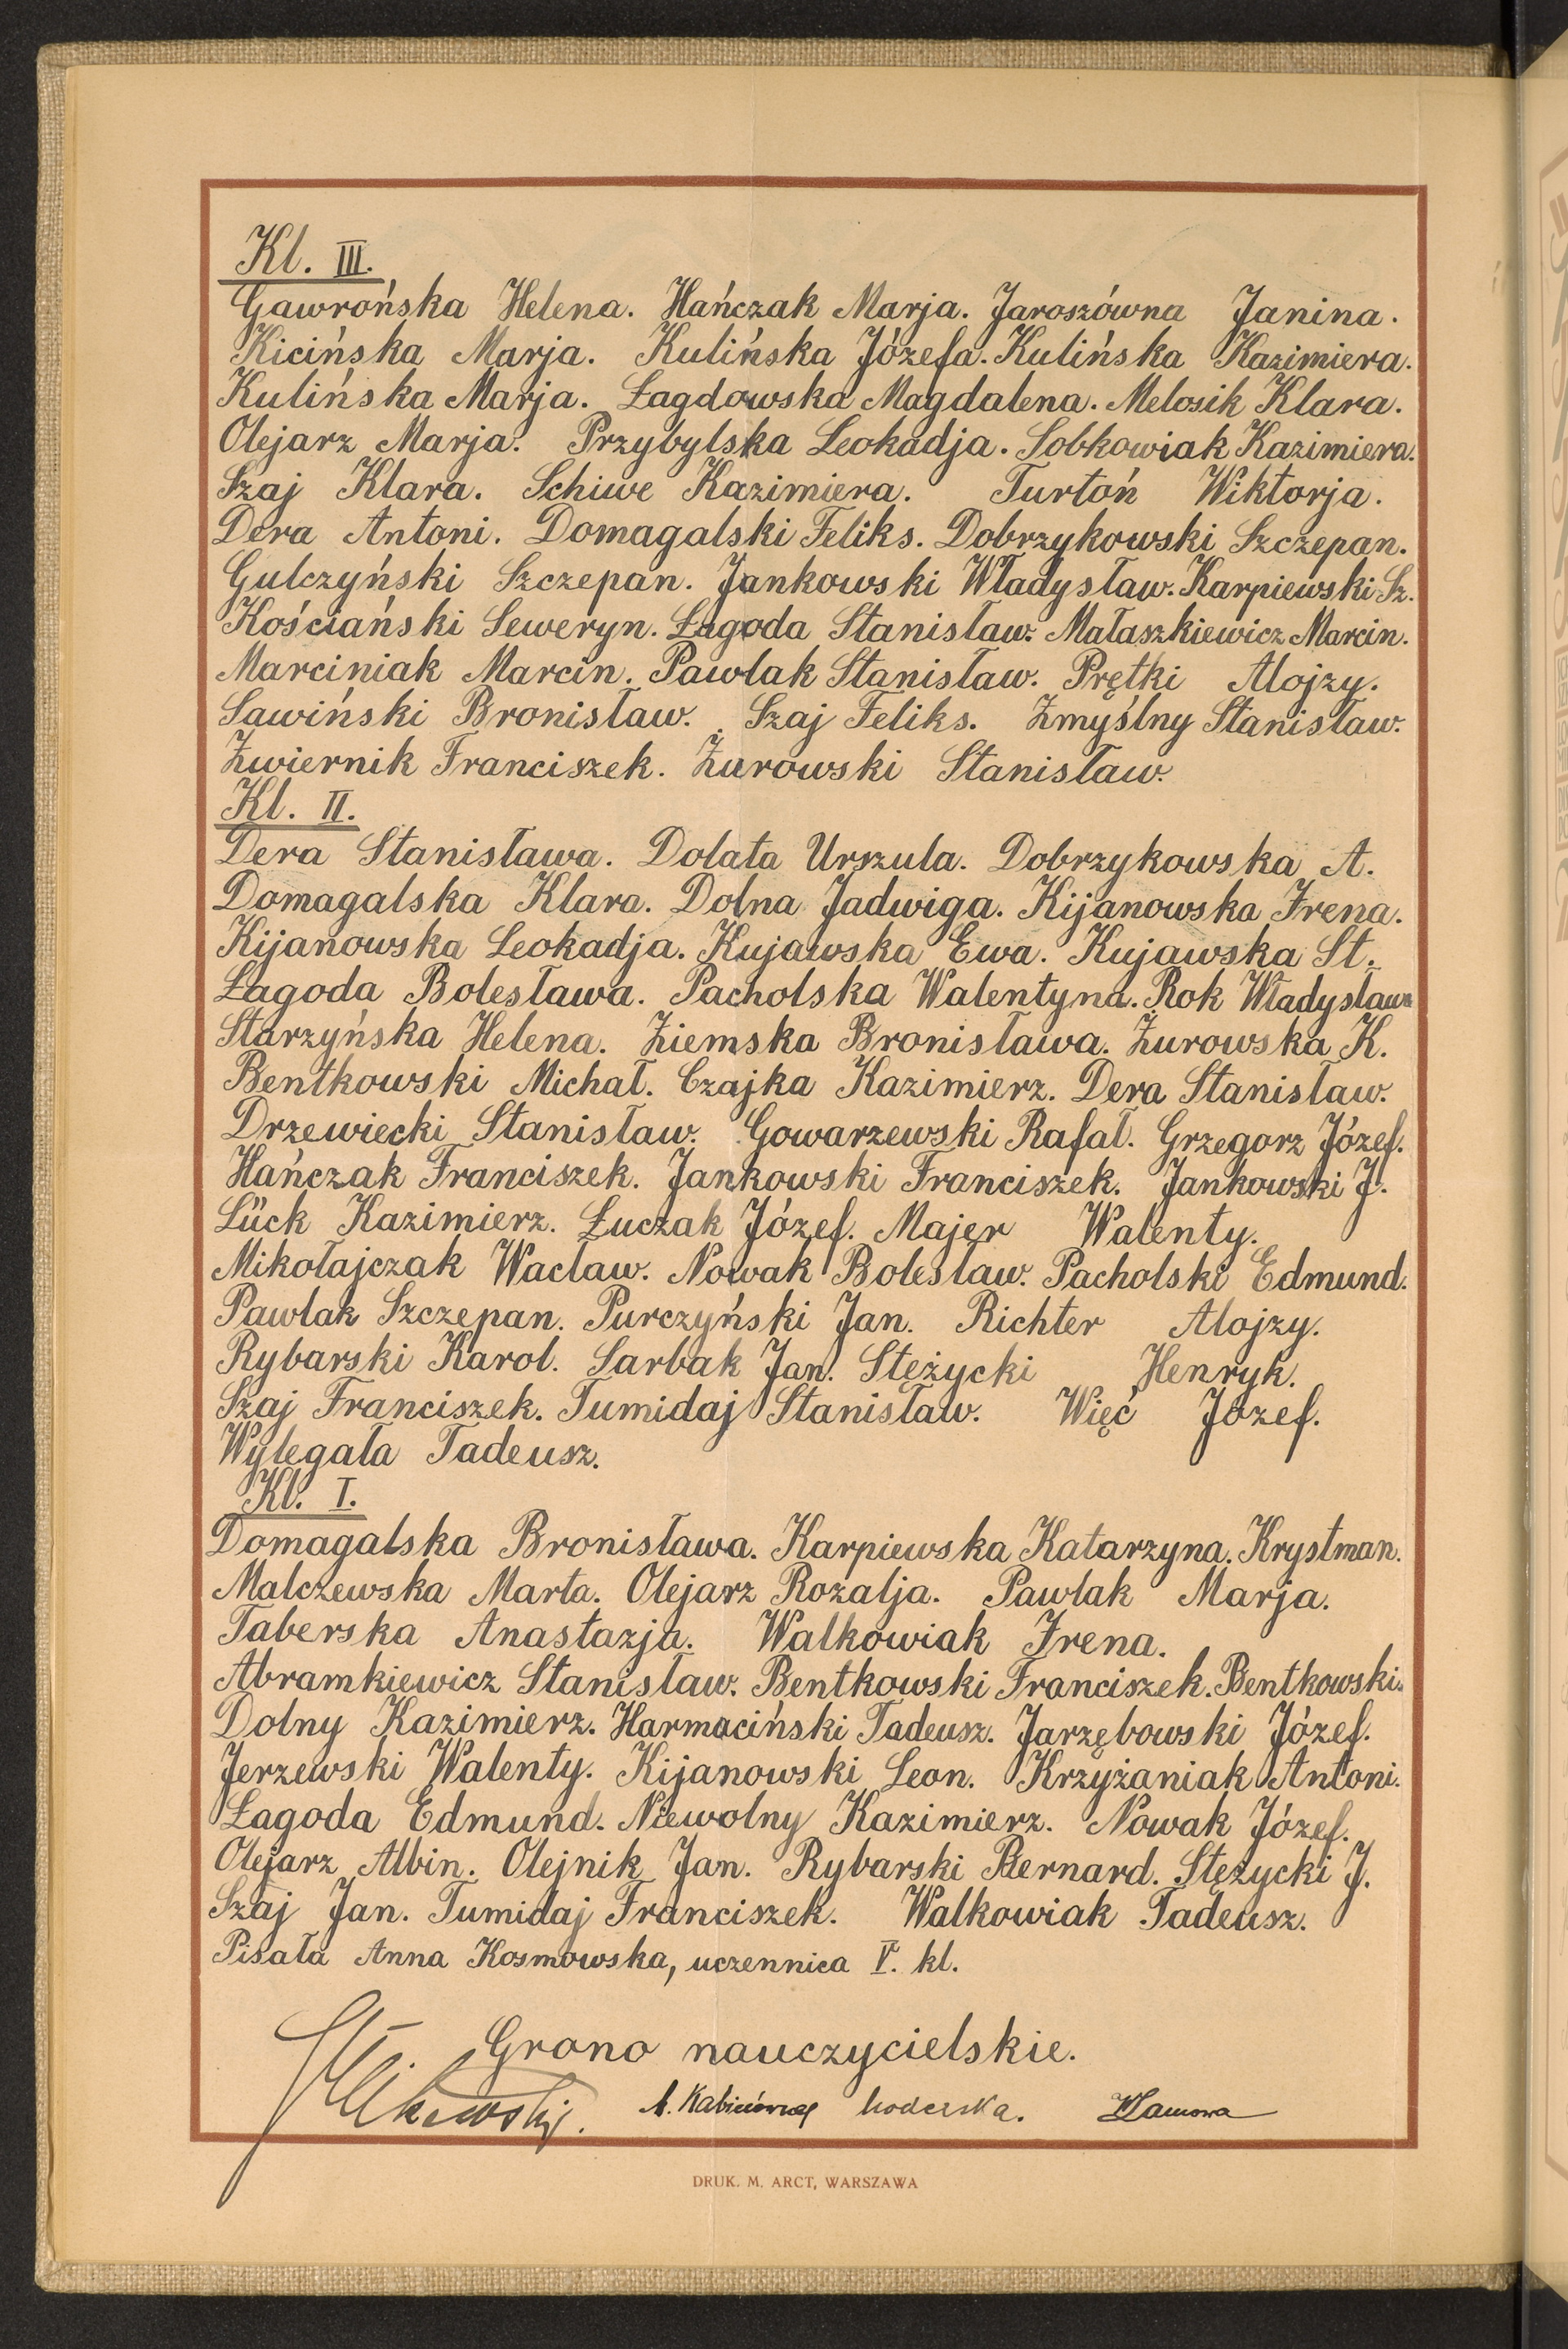 Kl. III.
Gawrońska Helena. Hańczak Marja. Jaroszówna Janina.
Kicińska Marja. Kulińska Józefa. Kulińska Kazimiera.
Kulińska Marja. Łagdowska Magdalena. Melosik Klara.
Olejarz Marja. Przybylska Leokadja. Sobkowiak Kazimiera.
Szaj Klara. Schiwe Kazimiera. Turtoń Wiktorja.
Dera Antoni. Domagalski Feliks. Dobrzykowski Szczepan.
Gulczyński Szczepan. Jankowski Władysław. Karpiewski Sz.
Kościański Seweryn. Łagoda Stanisław. Małaszkiewicz Marcin.
Marciniak Marcin. Pawlak Stanisław. Prętki Alojzy.
Sawiński Bronisław. Szaj Feliks. Zmyślny Stanisław.
Żwiernik Franciszek. Żurowski Stanisław.
Kl. II.
Dera Stanisława. Dolata Urszula. Dobrzykowska A.
Domagalska Klara. Dolna Jadwiga. Kijanowska Irena.
Kijanowska Leokadja. Kujawska Ewa. Kujawska St.
Łagoda Bolesława. Pacholska Walentyna. Rok Władysława
Starzyńska Helena. Ziemska Bronisława. Żurowska K.
Bentkowski Michał. Czajka Kazimierz. Dera Stanisław.
Drzewiecki Stanisław. Gowarzewski Rafał. Grzegorz Józef.
Hańczak Franciszek. Jankowski Franciszek. Jankowski J.
Lück Kazimierz. Łuczak Józef. Majer Walenty.
Mikołajczak Wacław. Nowak Bolesław. Pacholski Edmund.
Pawlak Szczepan. Purczyński Jan. Richter Alojzy.
Rybarski Karol. Sarbak Jan. Stężycki Henryk.
Szaj Franciszek. Tumidaj Stanisław. Więć Józef.
Wylegała Tadeusz.
Kl. I.
Domagalska Bronisława. Karpiewska Katarzyna. Krystman.
Malczewska Marta. Olejarz Rozalja. Pawlak Marja.
Taberska Anastazja. Walkowiak Irena.
Abramkiewicz Stanisław. Bentkowski Franciszek. Bentkowski.
Dolny Kazimierz. Harmaciński Tadeusz. Jarzębowski Józef.
Jerzewski Walenty. Kijanowski Leon. Krzyżaniak Antoni.
Łagoda Edmund. Niewolny Kazimierz. Nowak Józef.
Olejarz Albin. Olejnik Jan. Rybarski Bernard. Stężycki J.
Szaj Jan. Tumidaj Franciszek. Walkowiak Tadeusz.
Pisała Anna Kosmowska, uczennica V. kl.
Grono nauczycielskie.
DRUK. M. ARCT, WARSZAWA